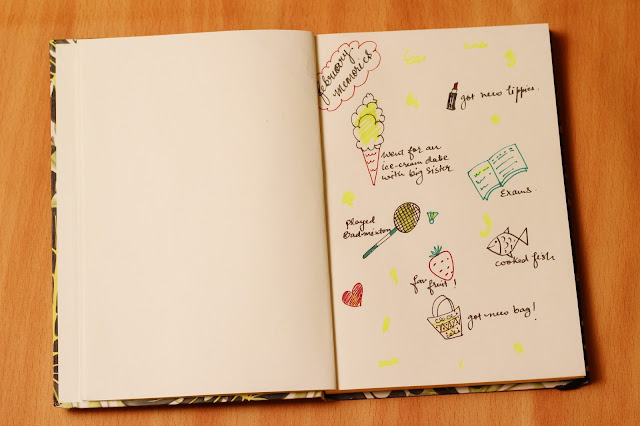 february
memories
got new lippies.
went for an
ice-cream date
with big sister
Exams.
Played
Badminton
cooked fish
fav fruit!
got new bag!